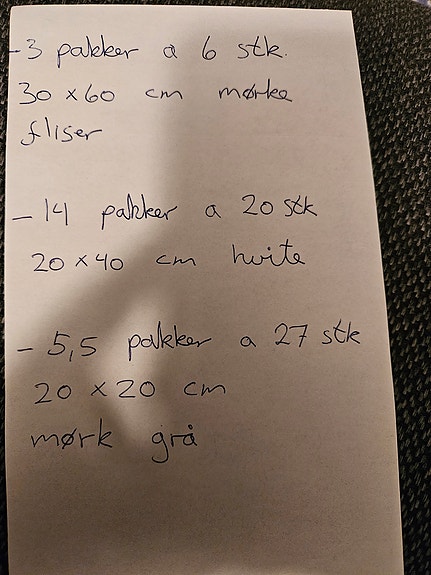 - 3 pakker a 6 stk.
30 x 60 cm mørke
fliser
- 14 pakker a 20 stk
20 x 40 cm hvite
- 5,5 pakker a 27 stk
20 x 20 cm
mørk grå